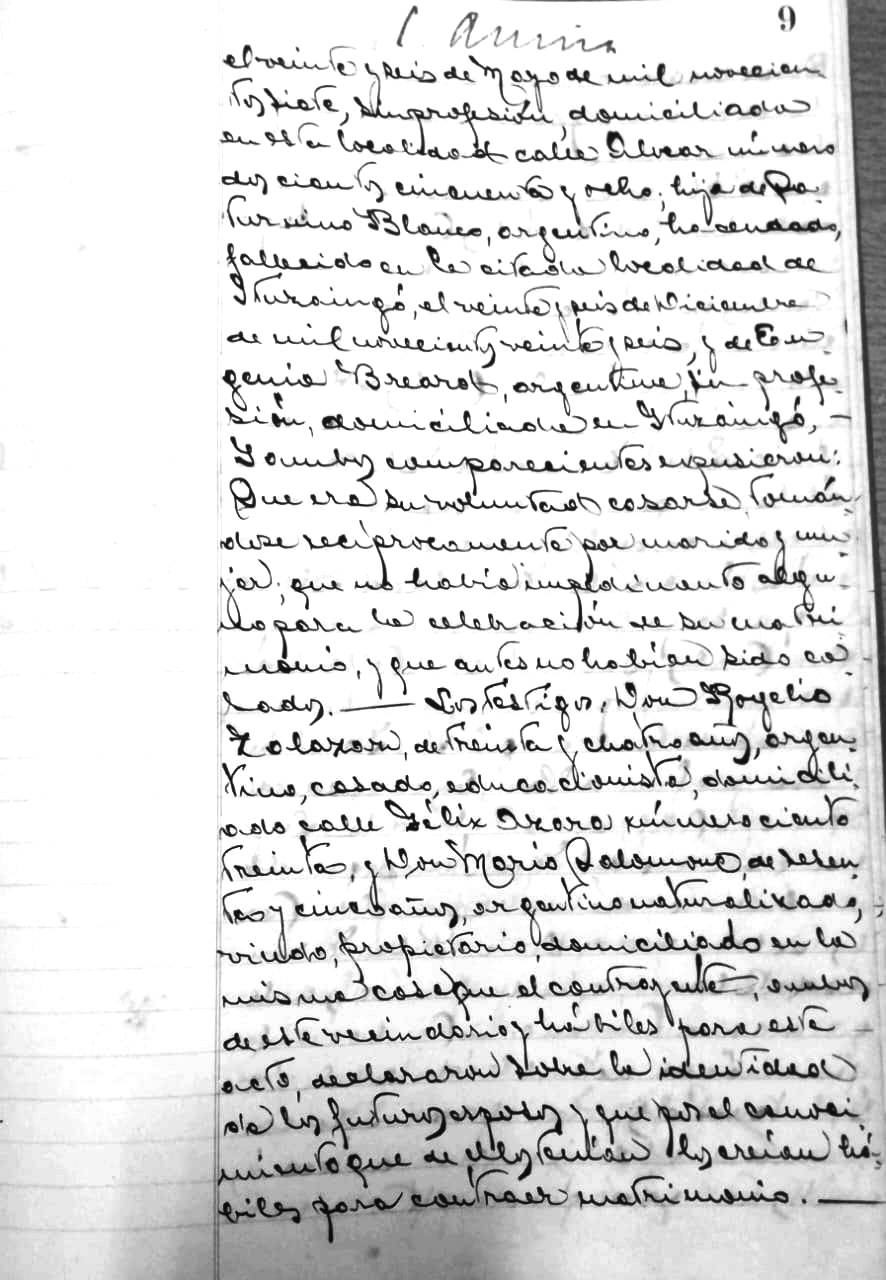 9
el veinte y seis de Mayo de mil novecien
tos siete, sin profesión, domiciliada
en esta localidad calle Alvear número
doscientos cincuenta y ocho; hija de Sa-
turnino Blanco, argentino, hacendado,
fallecido en la citada localidad de
Ituzaingó, el veinte y seis de Diciembre
de mil novecientos veinte y seis, y de Eu-
genia Breard, argentina, sin profe-
sión, domiciliada en Ituzaingó, —
Y ambos comparecientes expusieron:
Que era su voluntad casarse, tomán-
dose recíprocamente por marido y mu-
jer; que no había impedimento algu-
no para la celebración de su matri-
monio, y que antes no habían sido ca-
sados. — Los testigos, Don Rogelio
Zalazar, de treinta y cuatro años, argen-
tino, casado, educacionista, domicili-
ado calle Félix Azara número ciento
treinta, y Don Mario Salomone, de sesen-
ta y cinco años, argentino naturalizado,
viudo, propietario, domiciliado en la
misma casa que el contrayente, ambos
de este vecindario y hábiles para este
acto, declararon sobre la identidad
de los futuros esposos y que por el conoci
miento que de ellos tenían los creían há-
biles para contraer matrimonio. —